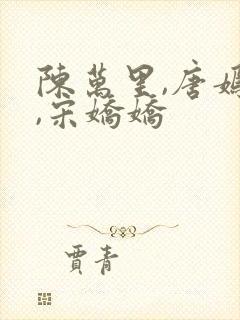 陳萬里,唐嫣
,宋嬌嬌
賈青